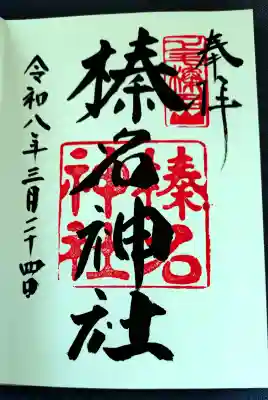 奉拝
榛名神社
榛名
神社
令和八年三月二十四日